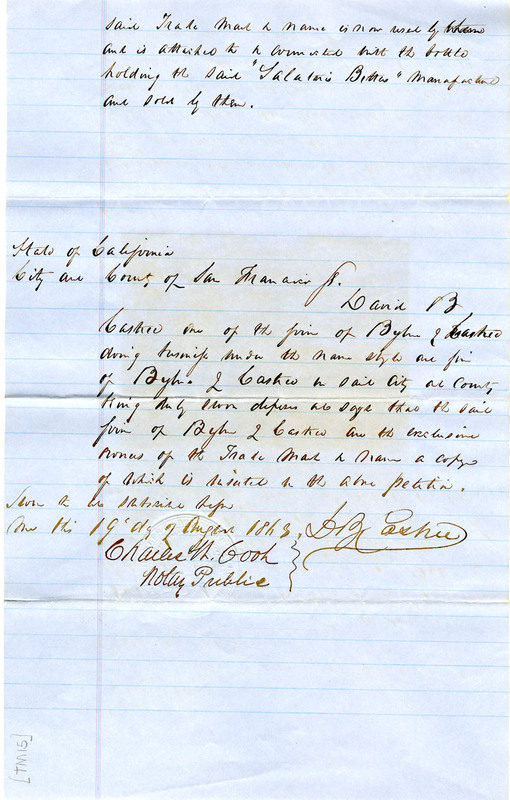 said Trade Mark & name is now used by them
and is attached to & connected with the bottle
holding the said "Salutaris Bitters" Manufactured
and sold by them.
State of California
City and County of San Francisco ss.
David B
Castree one of the firm of Byrne & Castree
doing business under the name style and firm
of Byrne & Castree in said City and County
being duly sworn deposes and says that the said
firm of Byrne & Castree are the exclusive
owners of the Trade Mark & Name a copy
of which is inserted in the above petition.
Sworn to and subscribed before
me this 19th day of August 1863. D B Castree
Charles Cook
Notary Public
[TM15]